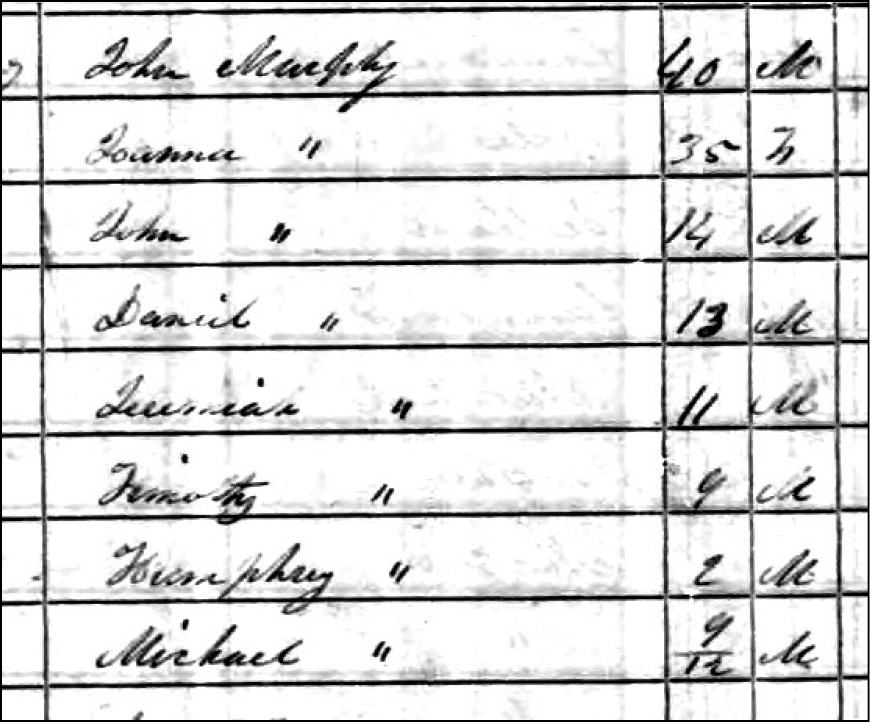 John Murphy 40 M
Joanna " 35 F
John " 14 M
Daniel " 13 M
Jeremiah " 11 M
Timothy " 9 M
Humphrey " 2 M
Michael " 9/12 M